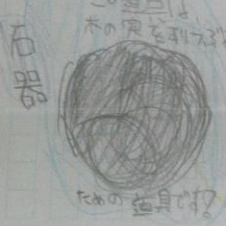 石器
この道具は
木の実をすりつぶす
ための道具です。